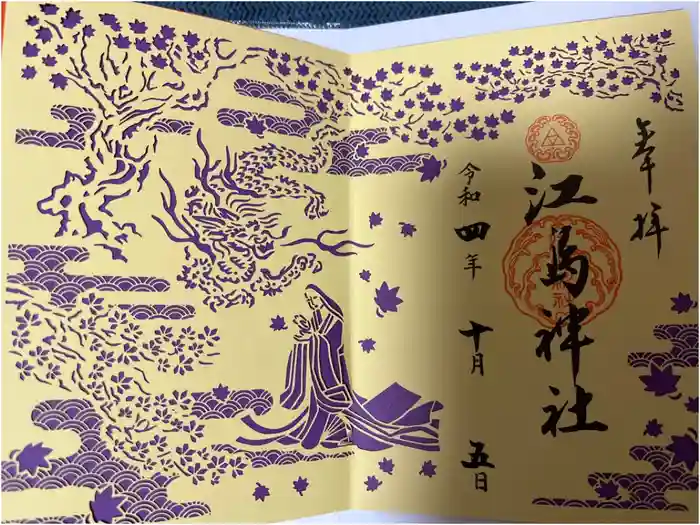 奉拝
江島神社
令和四年 十月 五日